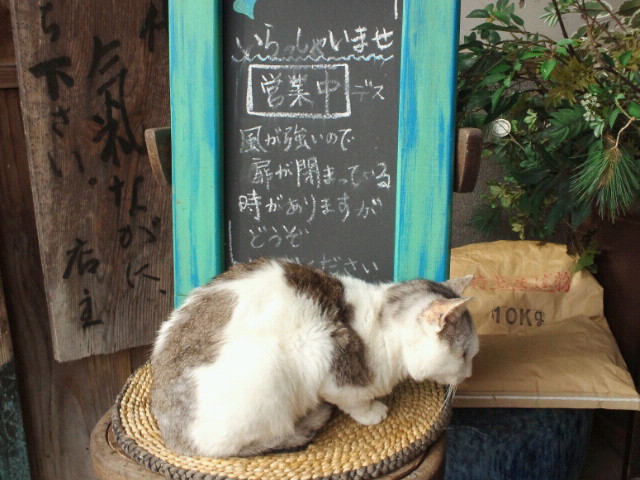 いらっしゃいませ
営業中デス
風が強いので
扉が閉まっている
時がありますが
どうぞ
ください
ち下さい。
氣ながに、
店主
10Kg